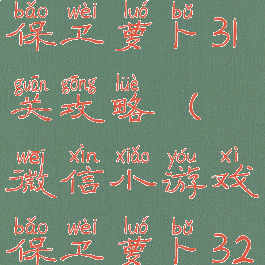 bǎo wèi luó bǔ
保卫萝卜31
guān gōng lüè
关攻略（
wēi xìn xiǎo yóu xì
微信小游戏
bǎo wèi luó bǔ
保卫萝卜32